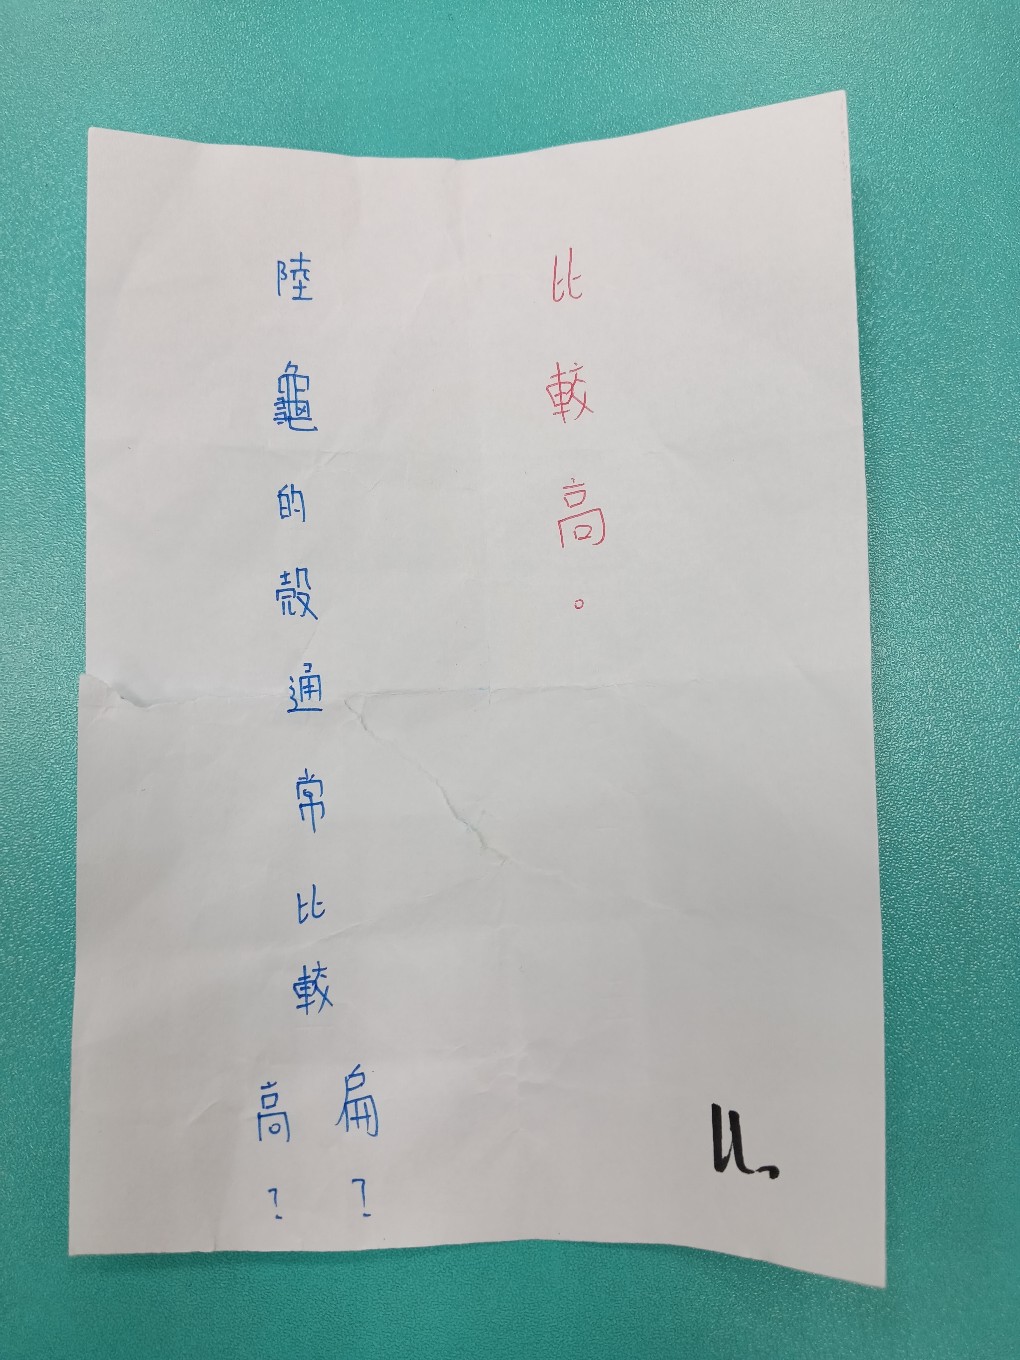 比較高。
陸龜的殼通常比較
扁?
高?
11.